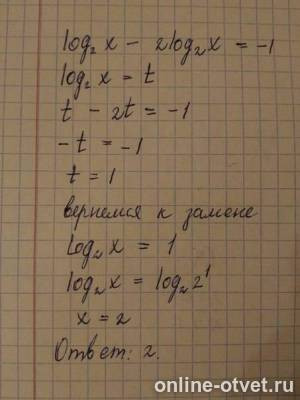 log₂x - 2log₂x = -1
log₂x = t
t - 2t = -1
-t = -1
t = 1
вернемся к замене
log₂x = 1
log₂x = log₂2¹
x = 2
Ответ: 2.
online-otvet.ru